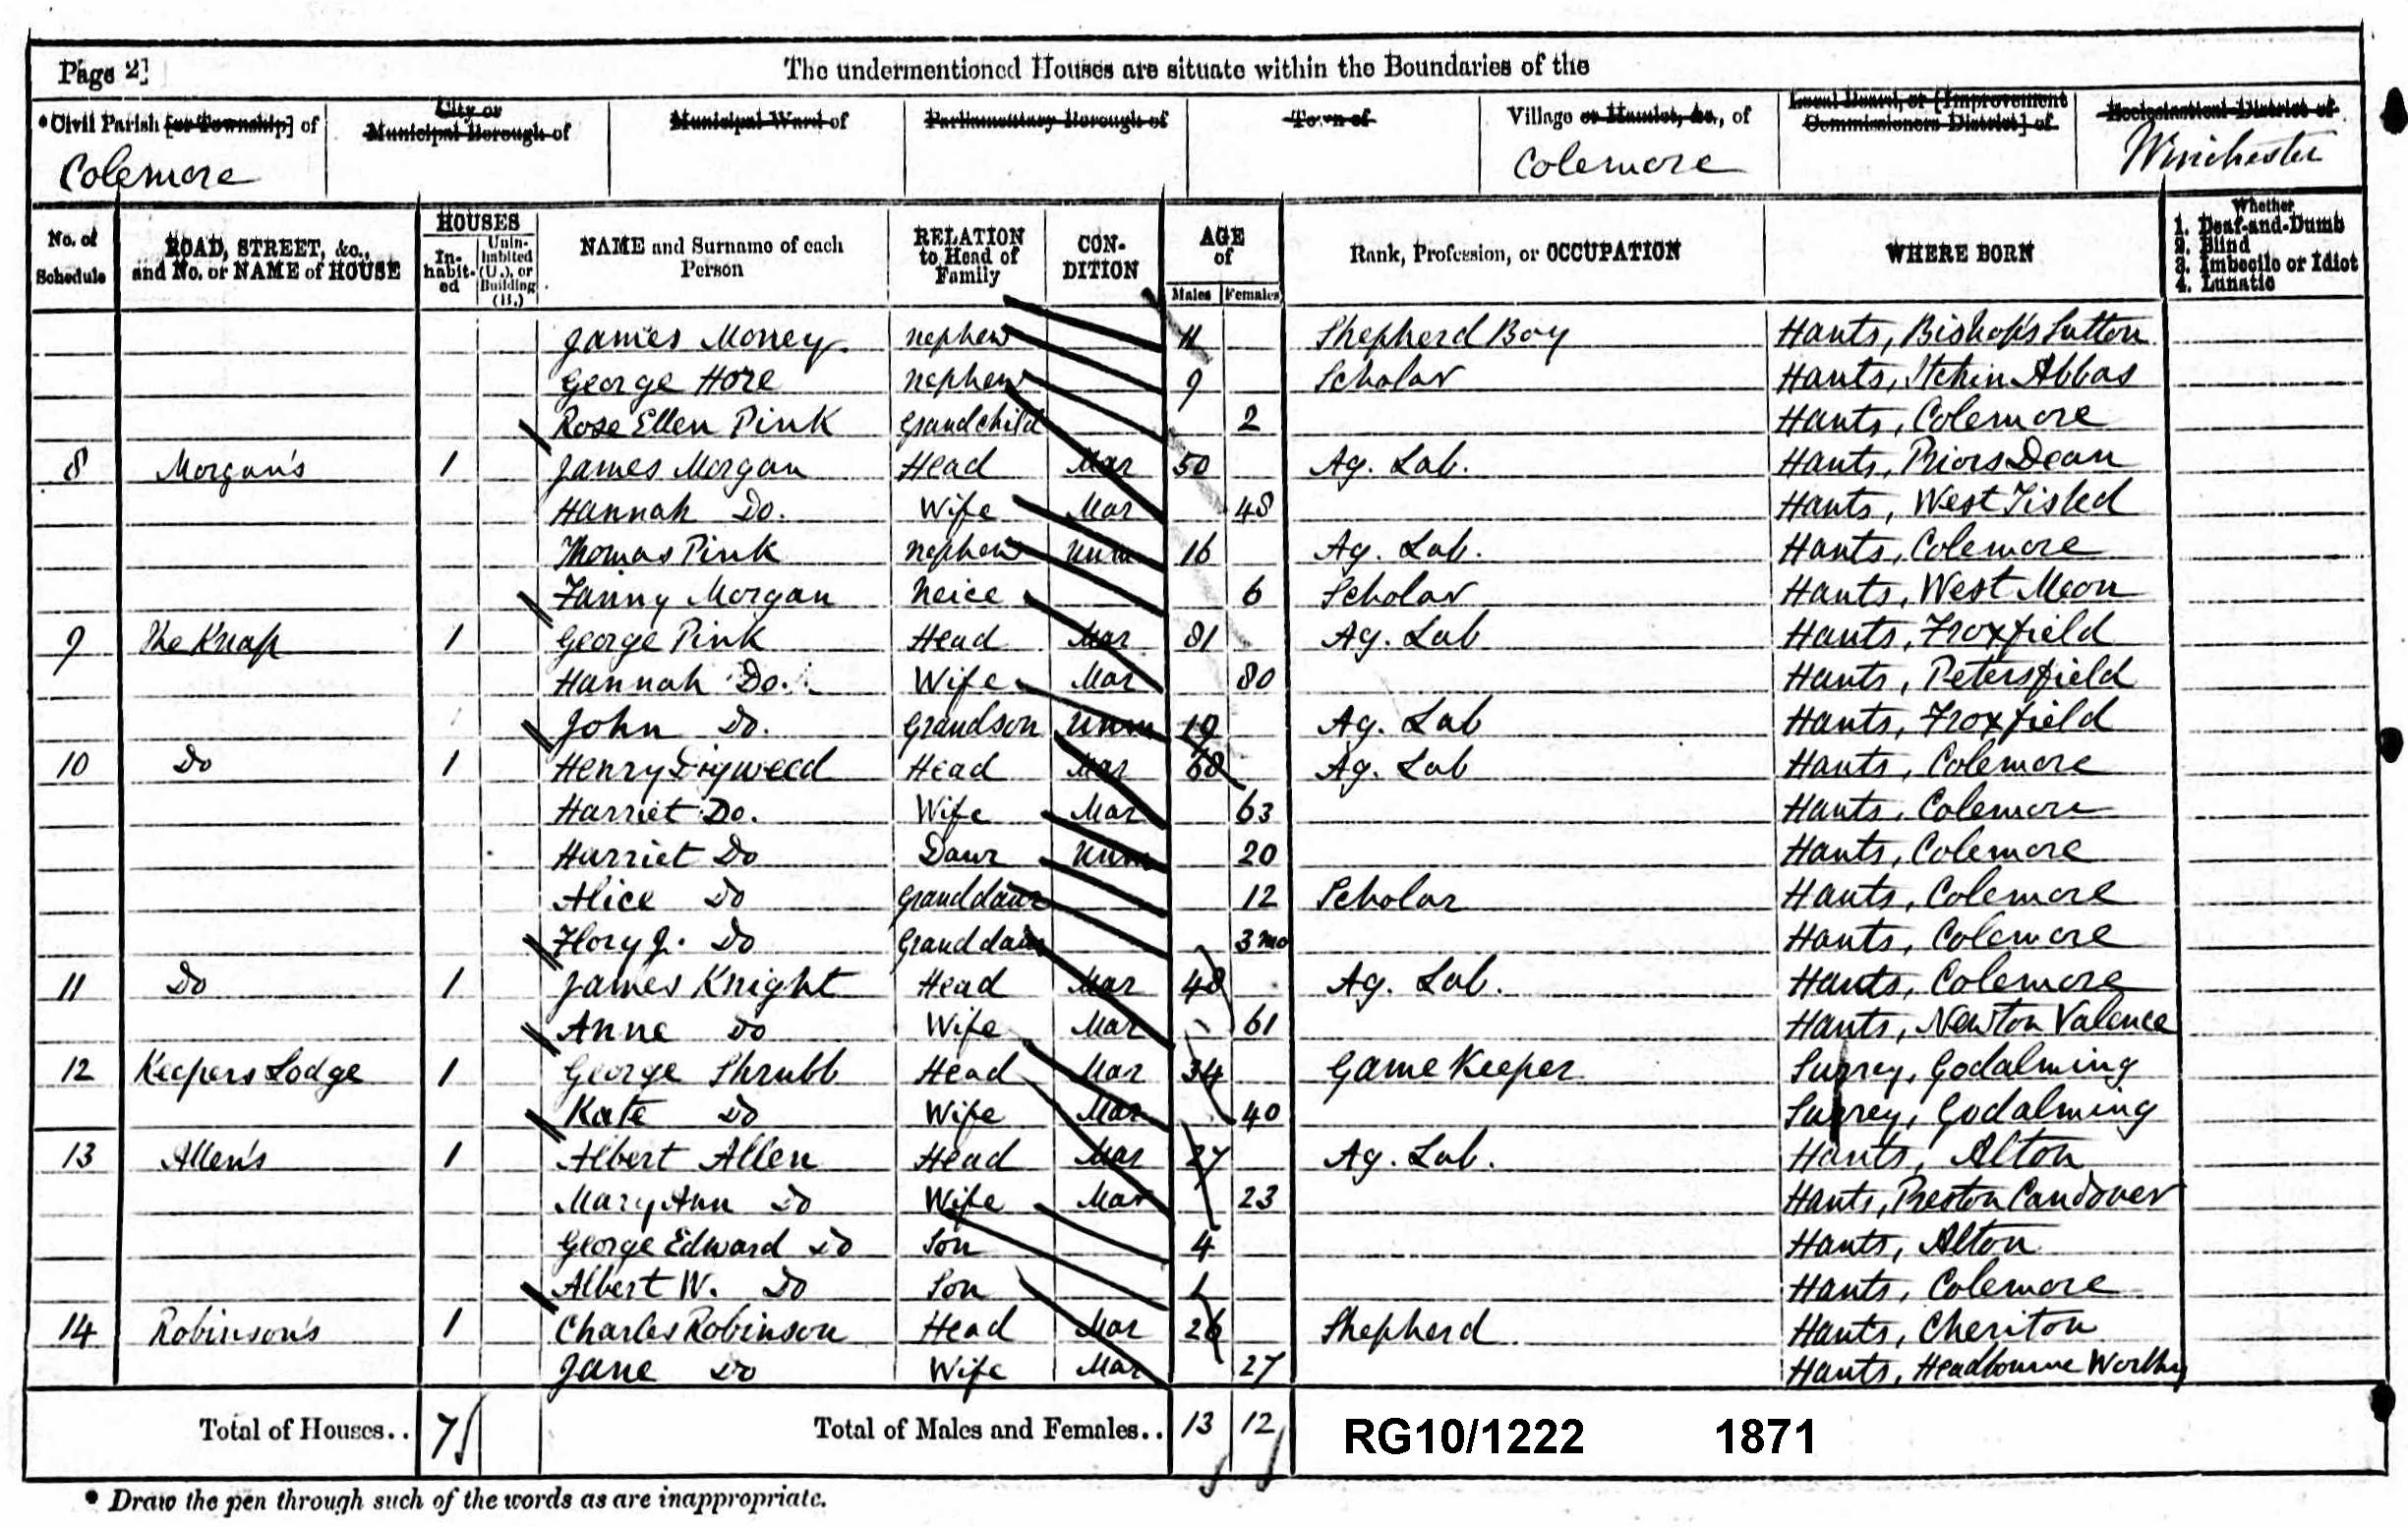 Page 2]
The undermentioned Houses are situate within the Boundaries of the
*Civil Parish [or Township] of
City or Municipal Borough of
Municipal Ward of
Parliamentary Borough of
Town of
Village or Hamlet, &c., of
Local Board, or [Improvement Commissioners District] of
Ecclesiastical District of
Colemore Colemore Winchester
No. of Schedule
ROAD, STREET, &c., and No. or NAME of HOUSE
HOUSES
Inhabited
Uninhabited (U.), or Building (B.)
NAME and Surname of each Person
RELATION to Head of Family
CONDITION
AGE of
Males Females
Rank, Profession, or OCCUPATION
WHERE BORN
Whether
1. Deaf-and-Dumb
2. Blind
3. Imbecile or Idiot
4. Lunatic
James Money nephew 11 Shepherd Boy Hants, Bishop's Sutton
George Hore nephew 9 Scholar Hants, Itchin Abbas
Rose Ellen Pink Grandchild 2 Hants, Colemore
8 Morgan's 1 James Morgan Head Mar 50 Ag. Lab. Hants, Priors Dean
Hannah Do. Wife Mar 48 Hants, West Tisted
Thomas Pink nephew Unm 16 Ag. Lab. Hants, Colemore
Fanny Morgan Neice 6 Scholar Hants, West Meon
9 The Knap 1 George Pink Head Mar 81 Ag. Lab Hants, Froxfield
Hannah Do. Wife Mar 80 Hants, Petersfield
John Do. Grandson Unm 19 Ag. Lab Hants, Froxfield
10 Do 1 Henry Digweed Head Mar 68 Ag. Lab Hants, Colemore
Harriet Do. Wife Mar 63 Hants, Colemore
Harriet Do Daur Unm 20 Hants, Colemore
Alice Do Granddaur 12 Scholar Hants, Colemore
Flory J. Do Granddaur 3 mo Hants, Colemore
11 Do 1 James Knight Head Mar 48 Ag. Lab. Hants, Colemore
Anne Do Wife Mar 61 Hants, Newton Valence
12 Keepers Lodge 1 George Shrubb Head Mar 34 Game Keeper Surrey, Godalming
Kate Do Wife Mar 40 Surrey, Godalming
13 Allen's 1 Albert Allen Head Mar 27 Ag. Lab. Hants, Alton
Mary Ann Do Wife Mar 23 Hants, Preston Candover
George Edward Do Son 4 Hants, Alton
Albert W. Do Son 1 Hants, Colemore
14 Robinson's 1 Charles Robinson Head Mar 26 Shepherd Hants, Cheriton
Jane Do Wife Mar 27 Hants, Headbourne Worthy
Total of Houses.. 7 Total of Males and Females.. 13 12 RG10/1222 1871
* Draw the pen through such of the words as are inappropriate.